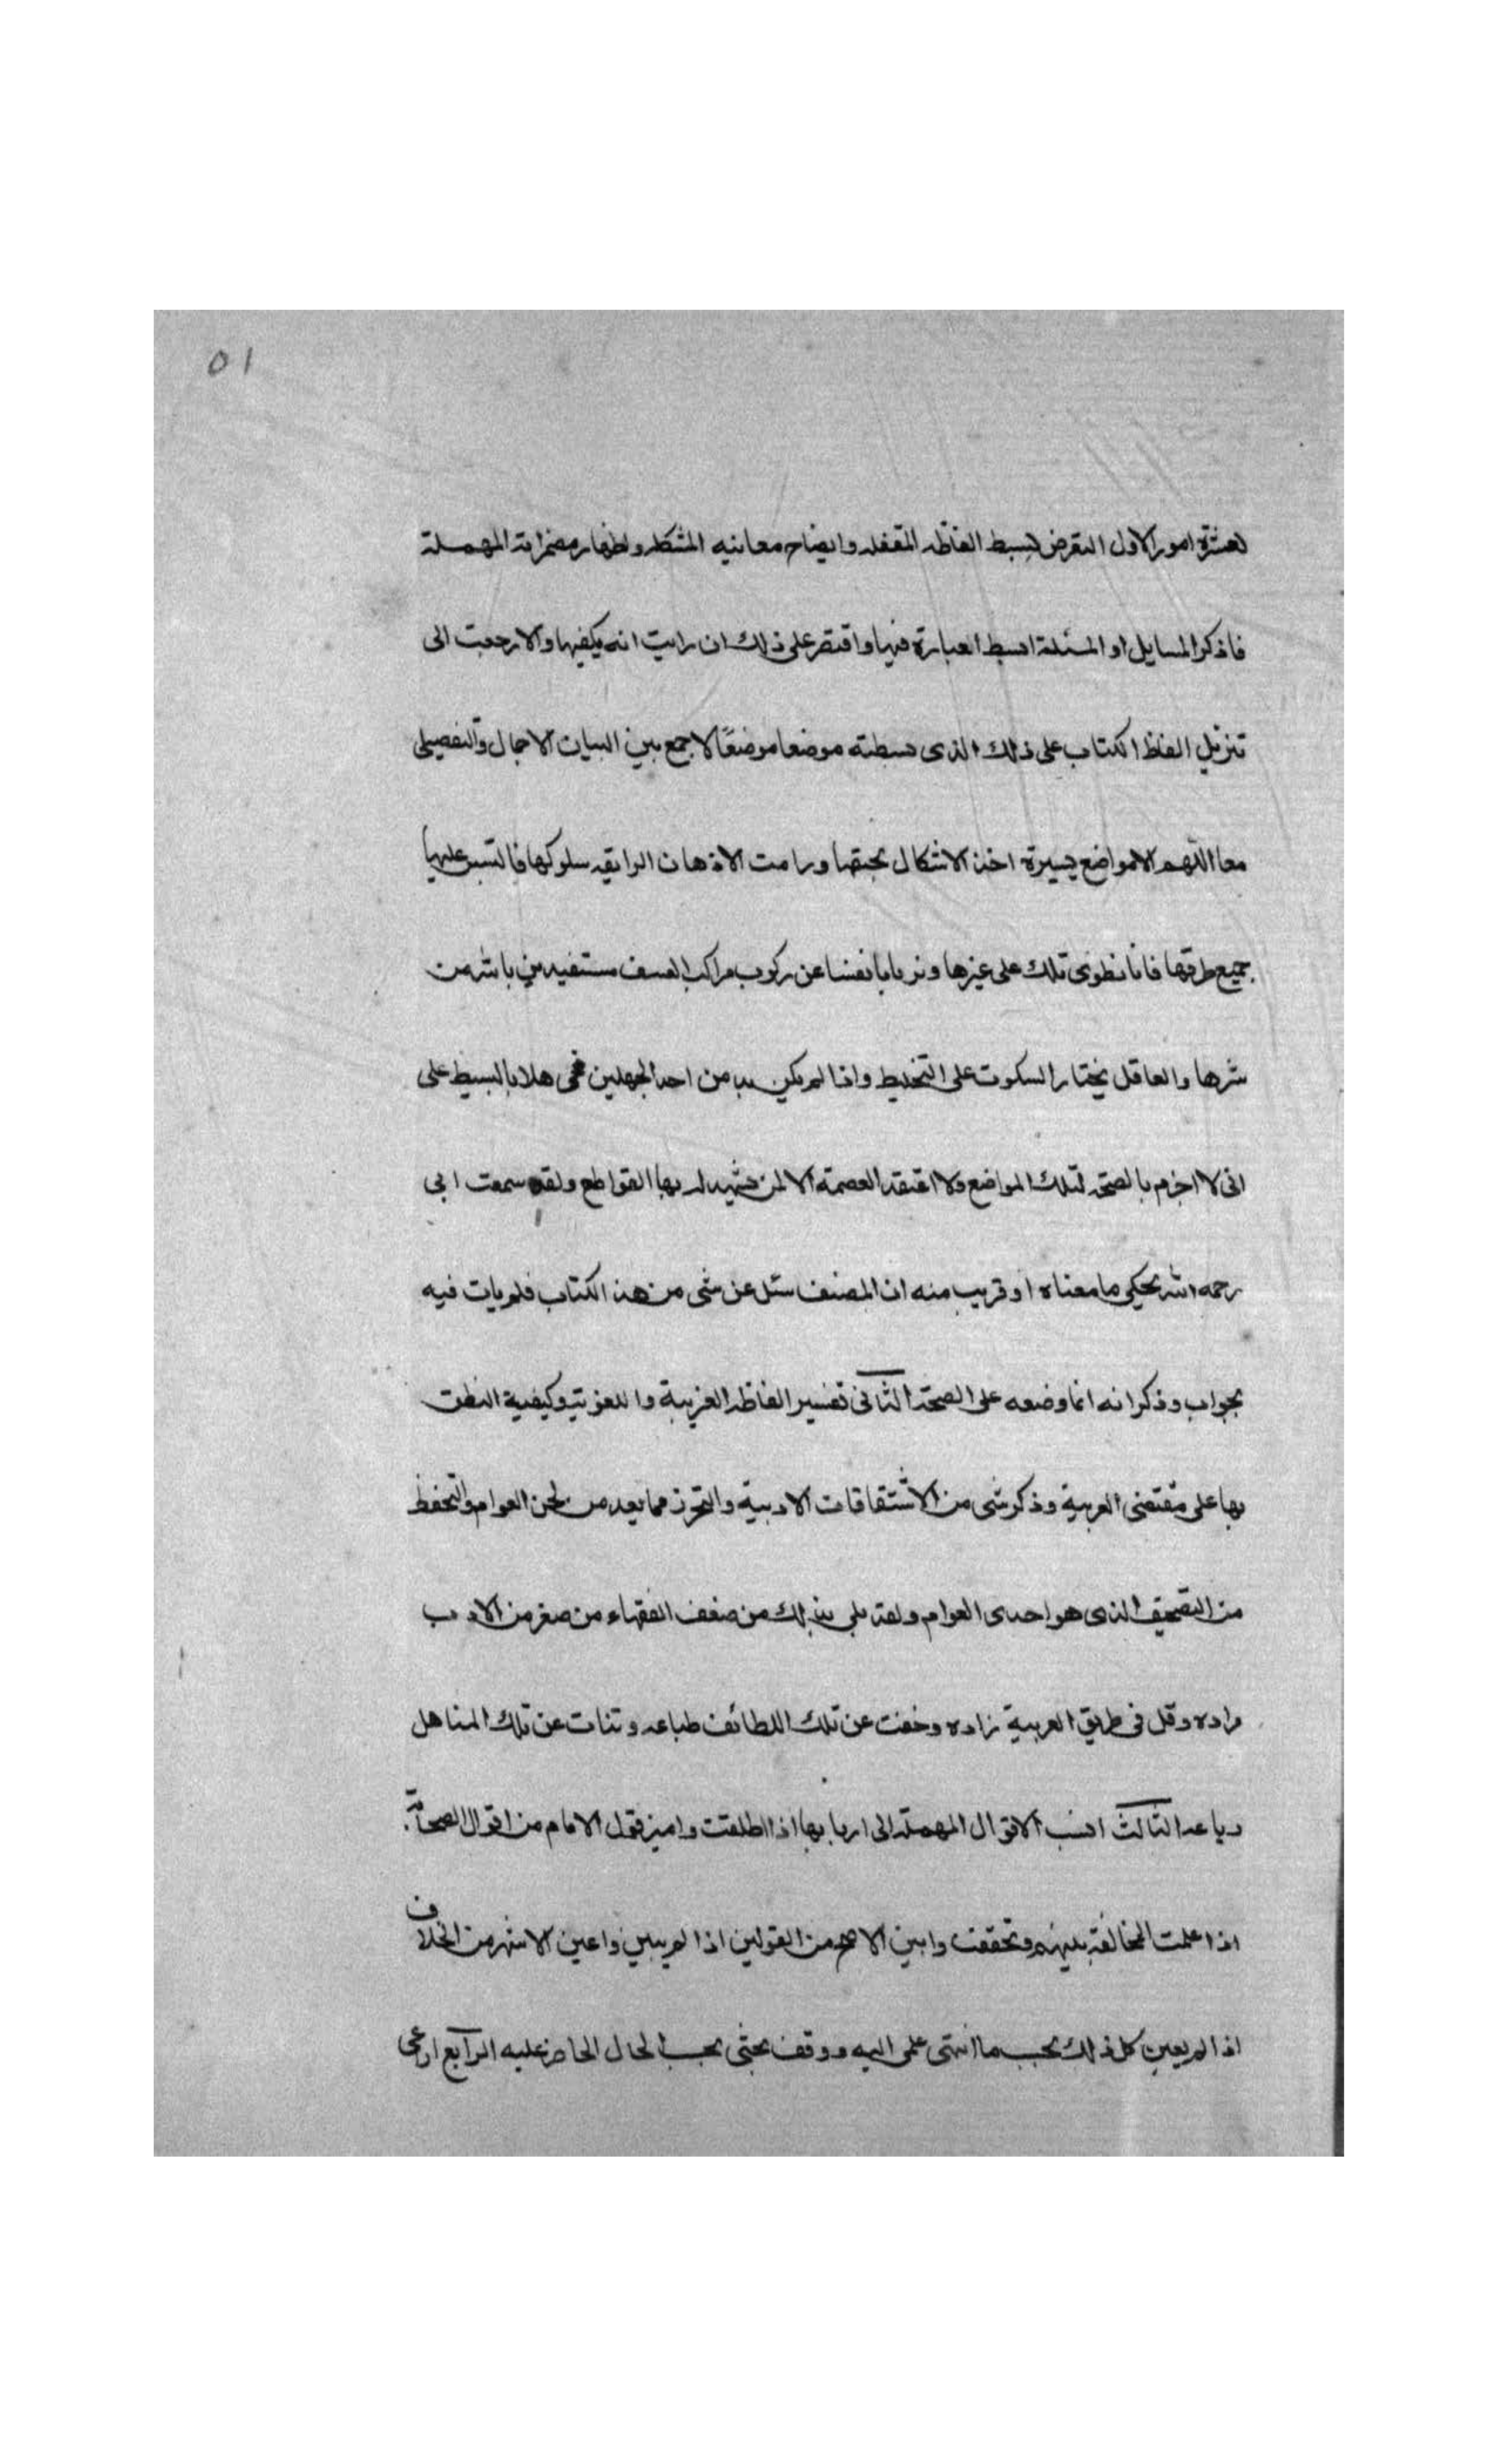 ٥١
لعشرة امور الاول التعرض لبسط الفاظه المقفله وايضاح معانيه المشكله واظهار مضمراته المهملة
فاذكر المسايل او المسئلة ابسط العبارة فيها واقتصر على ذلك ان رايت انه يكفيها والا رجعت الى
تنزيل الفاظ الكتاب على ذلك الذى بسطته موضعا موضعًا لاجمع بين البيان الاجمالى والتفصيلى
معا اللهم الا مواضع يسيرة اخذ الاشكال بخنقها ورامت الاذهان الرايقه سلوكها فالتبس عليها
جميع طرقها فانا نطوى تلك على غيرها ونربا بانفسنا عن ركوب مراكب العسف مستعيذين بالله من
شرها والعاقل يختار السكوت على التخليط واذا لم يكن بد من احد الجهلين فحى هلا بالبسيط على
انى لا اجزم بالصحة لتلك المواضع ولا اعتقد العصمة الا لمن شهد له بها القواطع ولقد سمعت ابى
رحمه الله يحكى ما معناه او قريب منه ان المصنف سئل عن شى من هذا الكتاب فلم يات فيه
بجواب وذكر انه انما وضعه على الصحة الثانى تفسير الفاظه الغريبة واللغوية وكيفية النطق
بها على مقتضى العربية وذكر شى من الاشتقاقات الادبية والتحرز مما يعد من لحن العوام والتحفظ
من التصحيف الذى هو احدى العوام ولقد بلى بذلك من ضعف الفقهاء من صفر من الادب
مزاده وقل فى طريق العربية زاده وخفت عن تلك اللطائف طباعه وتنات عن تلك المناهل
رباعه الثالث انسب الاقوال المهملة الى اربابها اذا اطلقت واميز قول الامام من اقوال الصحابة
اذا علمت المخالفة بينهم وتحققت وابين الاصح من القولين اذا لم يبين واعين الاشهر من الخلاف
اذا لم يعين كل ذلك بحسب ما انتهى علمى اليه ووقف بحثى بحسب الحال الحاضر عليه الرابع ارعى